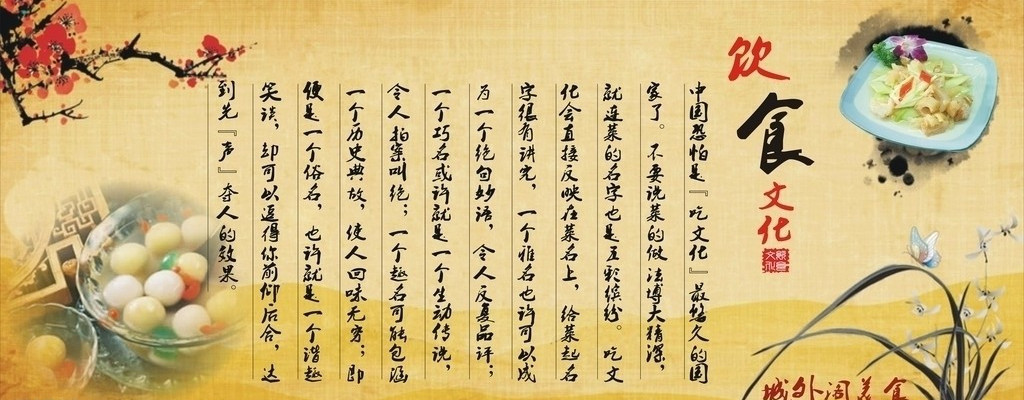 饮食文化
中国恐怕是『吃文化』最悠久的国
家了。不要说菜的做法博大精深，
就连菜的名字也是五彩缤纷。吃文
化会直接反映在菜名上，给菜起名
字很有讲究，一个雅名也许可以成
为一个绝句妙语，令人反复品评；
一个巧名或许就是一个生动传说，
令人拍案叫绝；一个趣名可能包涵
一个历史典故，使人回味无穷；即
便是一个俗名，也许就是一个谐趣
笑谈，却可以逗得你前仰后合，达
到先『声』夺人的效果。
城外阁美食